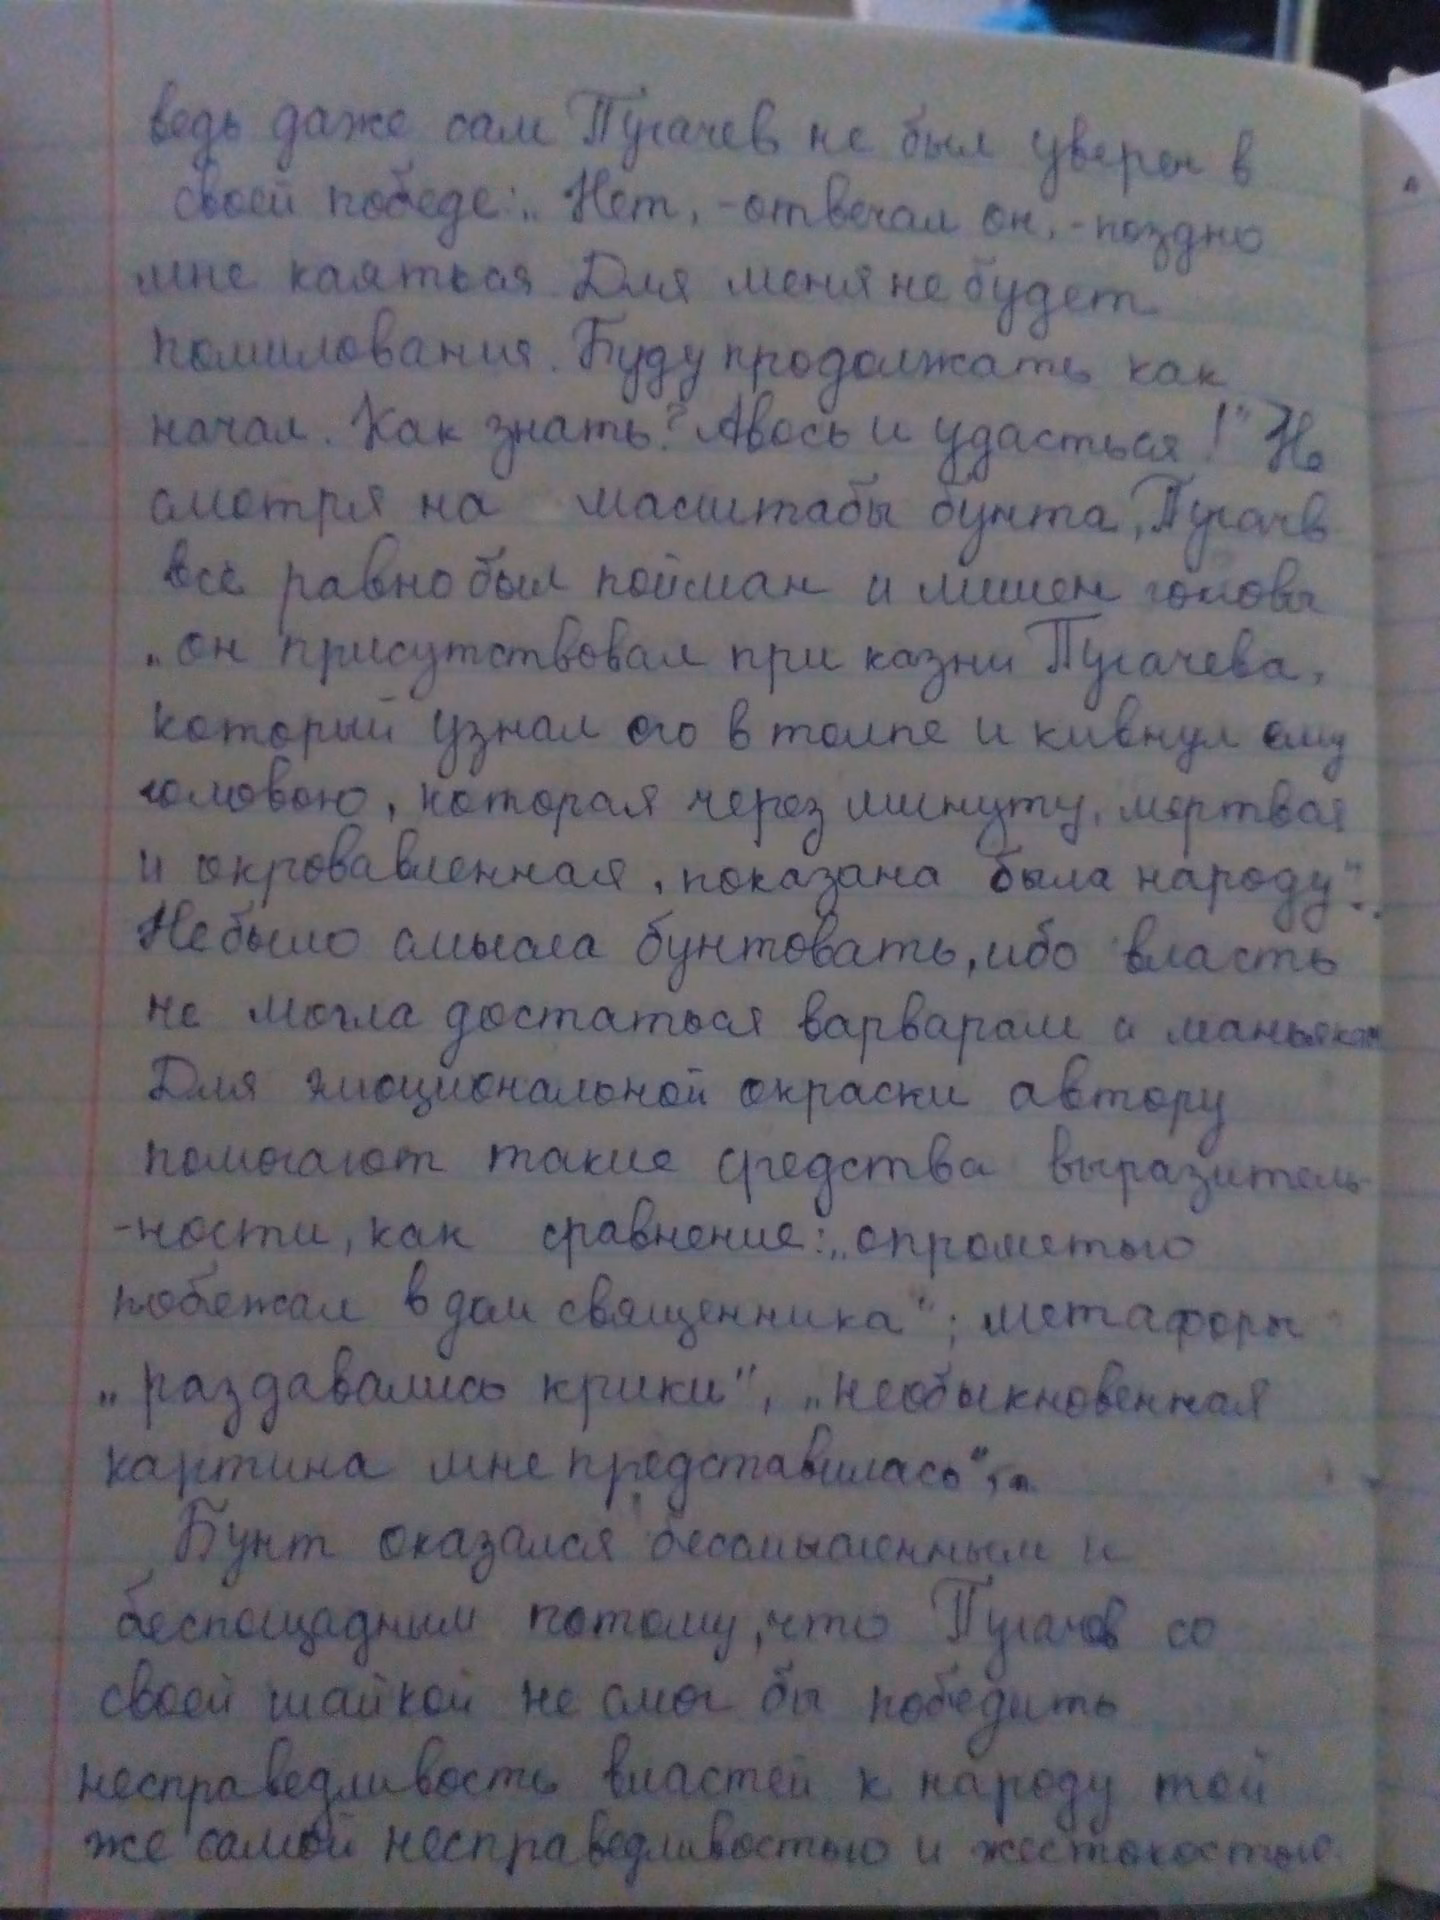 ведь даже сам Пугачев не был уверен в
своей победе: „Нет, -отвечал он, -поздно
мне каяться Для меня не будет
помилования. Буду продолжать как
начал. Как знать? Авось и удасться!" Не
смотря на масштабы бунта, Пугачв
все равно был пойман и лишен головы
„он присутствовал при казни Пугачева,
который узнал его в толпе и кивнул ему
головою, которая через минуту, мертвая
и окровавленная, показана была народу".
Не было смысла бунтовать, ибо власть
не могла достаться варварам и маньякам
Для эмоциональной окраски автору
помогают такие средства выразитель-
-ности, как сравнение: „опрометью
побежал в дом священника"; метафоры
„раздавались крики", „необыкновенная
картина мне представилась",
Бунт оказался бессмысленным и
беспощадным потому, что Пугачев со
своей шайкой не смог бы победить
несправедливость властей к народу той
же самой несправедливостью и жестокостью